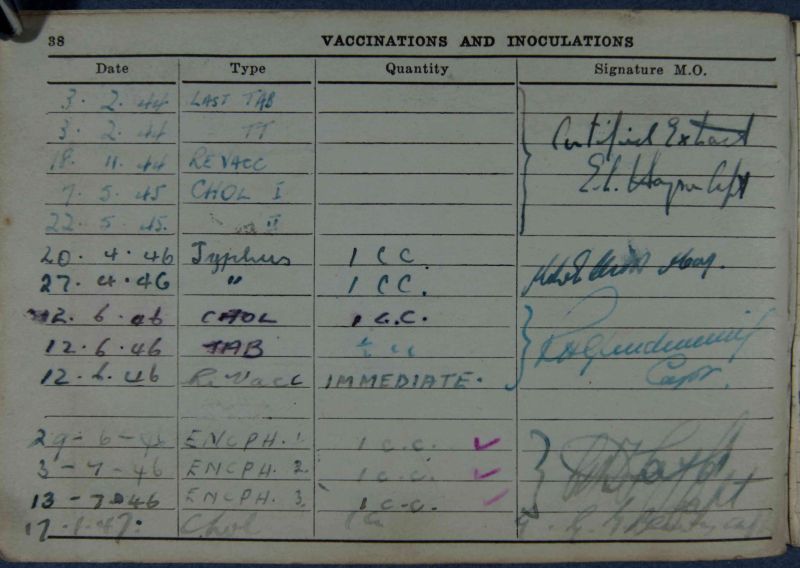 38 VACCINATIONS AND INOCULATIONS
Date Type Quantity Signature M.O.
3. 2. 44 LAST TAB
3. 2. 44 TT Certified Extract
18. 11. 44 REVACC
7. 5. 45 CHOL I Capt
22. 5. 45. II
20. 4. 46 Typhus 1 CC
27. 4. 46 " 1 CC.
12. 6. 46 CHOL 1 C.C.
12. 6. 46 TAB ½ cc
12. 6. 46 Re Vacc IMMEDIATE. Capt.
29 - 6 - 46 ENCPH. 1. 1 C.C. ✓
3 - 7 - 46 ENCPH. 2. 1 C.C. ✓
13 - 7 - 46 ENCPH. 3. 1 C.C. ✓ Capt
17. 1. 47. Chol 1 cc